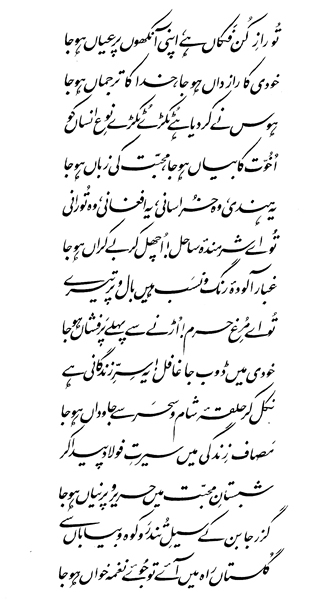 تُو رازِ کُن فَکاں ہے اپنی آنکھوں پر عیاں ہو جا
خودی کا راز داں ہو جا، خدا کا ترجماں ہو جا
ہوس نے کر دیا ہے ٹکڑے ٹکڑے نوعِ انساں کو
اُخُوّت کا بیاں ہو جا، محبّت کی زباں ہو جا
یہ ہندی، وہ خراسانی، یہ افغانی، وہ تُورانی
تُو اے شرمندۂ ساحل! اُچھل کر بے کراں ہو جا
غبار آلودۂ رنگ و نَسَب ہیں بال و پر تیرے
تُو اے مُرغِ حرم! اُڑنے سے پہلے پَرفشاں ہو جا
خودی میں ڈوب جا غافل! یہ سِرِّ زندگانی ہے
نکل کر حلقۂ شام و سحر سے جاوداں ہو جا
مَصافِ زندگی میں سیرتِ فولاد پیدا کر
شبستانِ محبّت میں حریر و پرنیاں ہو جا
گزر جا بن کے سیلِ تُند رَو کوہ و بیاباں سے
گُلستاں راہ میں آئے تو جُوئے نغمہ خواں ہو جا